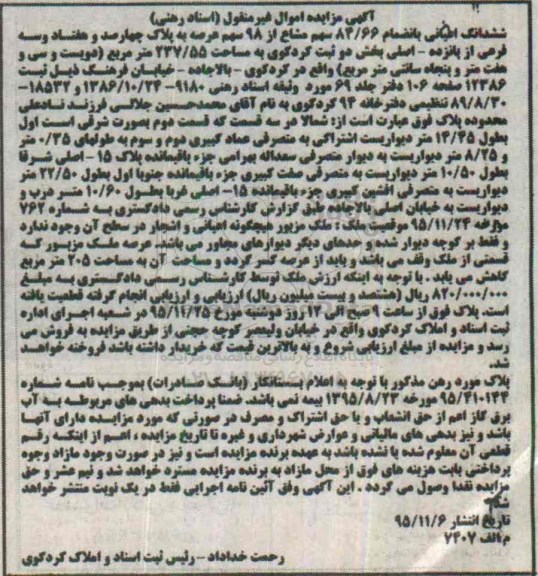 آگهی مزایده اموال غیرمنقول (اسناد رهنی)
ششدانگ اعیانی بانضمام ۸۴/۶۶ سهم مشاع از ۹۸ سهم عرصه به پلاک چهارصد و هفتاد وسه
فرعی از پانزده - اصلی بخش دو ثبت کردکوی به مساحت ۲۳۷/۵۵ متر مربع (دویست و سی و
هفت متر و پنجاه سانتی متر مربع) واقع در کردکوی - بالاجاده - خیابان فرهنگ ذیل ثبت
۱۲۳۸۶ صفحه ۱۰۶ دفتر جلد ۶۹ مورد وثیقه اسناد رهنی ۹۱۸۰-۱۳۸۶/۱۰/۲۴ و ۱۸۵۳۲-
۸۹/۸/۳۰ تنظیمی دفترخانه ۹۴ کردکوی به نام آقای محمدحسین جلالی فرزند نادعلی
محدوده پلاک فوق عبارت است از: شمالا در سه قسمت که قسمت دوم بصورت شرقی است اول
بطول ۱۴/۴۵ متر دیواریست اشتراکی به متصرفی عماد کبیری دوم و سوم به طولهای ۰/۳۵ متر
و ۸/۲۵ متر دیواریست به دیوار متصرفی سعداله بهرامی جزء باقیمانده پلاک ۱۵ - اصلی شرقا
بطول ۱۰/۵۰ متر دیواریست به متصرفی صفت کبیری جزء باقیمانده جنوبا اول بطول ۲۲/۵۰ متر
دیواریست به متصرفی افشین کبیری جزء باقیمانده ۱۵- اصلی غربا بطول ۱۰/۶۰ متر درب و
دیواریست به خیابان اصلی بالاجاده طبق گزارش کارشناس رسمی دادگستری به شماره ۷۶۲
مورخه ۹۵/۱۱/۲۴ موقعیت ملک : ملک مزبور هیچگونه اعیانی و اشجار در سطح آن وجود ندارد
و فقط بر کوچه دیوار شده و حدهای دیگر دیوارهای مجاور می باشد. عرصه ملک مزبور که
قسمتی از ملک وقف می باشد و باید از عرصه کسر گردد و مساحت آن به مساحت ۲۰۵ متر مربع
کاهش می یابد . با توجه به اینکه ارزش ملک توسط کارشناس رسمی دادگستری به مبلغ
۸۲۰/۰۰۰/۰۰۰ ریال (هشتصد و بیست میلیون ریال) ارزیابی و ارزیابی انجام گرفته قطعیت یافته
است. پلاک فوق از ساعت ۹ صبح الی ۱۲ روز دوشنبه مورخ ۹۵/۱۱/۲۵ در شعبه اجرای اداره
ثبت اسناد و املاک کردکوی واقع در خیابان ولیعصر کوچه حجتی از طریق مزایده به فروش می
رسد و مزایده از مبلغ ارزیابی شروع و به بالاترین قیمت که خریدار داشته باشد فروخته خواهد
شد.
پلاک مورد رهن مذکور با توجه به اعلام بستانکار (بانک صادرات) بموجب نامه شماره
۹۵/۴۱۰۱۴۴ مورخه ۱۳۹۵/۸/۲۳ بیمه نمی باشد. ضمنا پرداخت بدهی های مربوطه به آب
برق گاز اعم از حق انشعاب و یا حق اشتراک و مصرف در صورتی که مورد مزایده دارای آنها
باشد و نیز بدهی های مالیاتی و عوارض شهرداری و غیره تا تاریخ مزایده ، اعم از اینکه رقم
قطعی آن معلوم شده یا نشده باشد به عهده برنده مزایده است و نیز در صورت وجود مازاد وجوه
پرداختی بابت هزینه های فوق از محل مازاد به برنده مزایده مسترد خواهد شد و نیم عشر و حق
مزایده نقدا وصول می گردد . این آگهی وفق آئین نامه اجرایی فقط در یک نوبت منتشر خواهد
شد.
تاریخ انتشار ۹۵/۱۱/۶
م الف ۷۴۰۷
رحمت خداداد - رئیس ثبت اسناد و املاک کردکوی